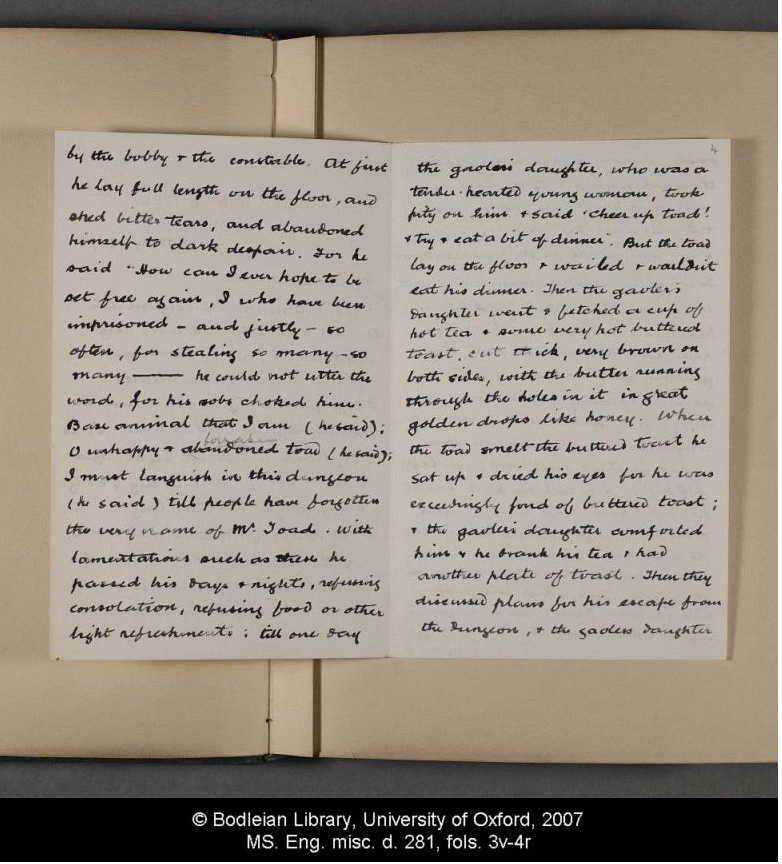 by the bobby & the constable. At first
he lay full length on the floor, and
shed bitter tears, and abandoned
himself to dark despair. For he
said "How can I ever hope to be
set free again, I who have been
imprisoned – and justly – so
often, for stealing so many – so
many —— he could not utter the
word, for his sobs choked him.
Base animal that I am (he said);
forsaken
O unhappy & abandoned toad (he said);
I must languish in this dungeon
(he said) till people have forgotten
the very name of Mr. Toad. With
lamentations such as these he
passed his days & nights, refusing
consolation, refusing food or other
light refreshments; till one day
4
the gaoler's daughter, who was a
tender-hearted young woman, took
pity on him & said 'Cheer up toad!
& try & eat a bit of dinner". But the toad
lay on the floor & wailed & wouldn't
eat his dinner. Then the gaoler's
daughter went & fetched a cup of
hot tea & some very hot buttered
toast, cut thick, very brown on
both sides, with the butter running
through the holes in it in great
golden drops like honey. When
the toad smelt the buttered toast he
sat up & dried his eyes for he was
exceedingly fond of buttered toast;
& the gaoler's daughter comforted
him & he drank his tea & had
another plate of toast. Then they
discussed plans for his escape from
the dungeon, & the gaolers daughter
© Bodleian Library, University of Oxford, 2007
MS. Eng. misc. d. 281, fols. 3v-4r